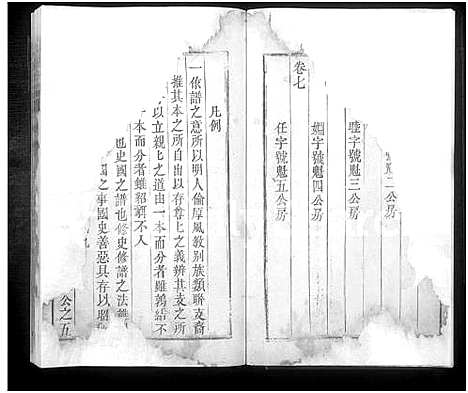 卷七
魁二公房
睦字號魁三公房
婣字號魁四公房
任字號魁五公房
凡例
一依譜之意所以明人倫厚風敎别族類聨支裔
推其本之所自出以存尊上之義辨其支之所
以立親上之道由一本而分者雖鶉結不
一本而分者雖貂
不入
也史國之譜也修史修譜之法
之事國史善惡具存以昭
公之五